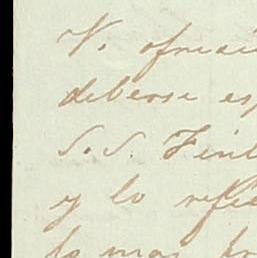 V. ofreci
deberse es
S. S. Finl
y lo refie
lo mas